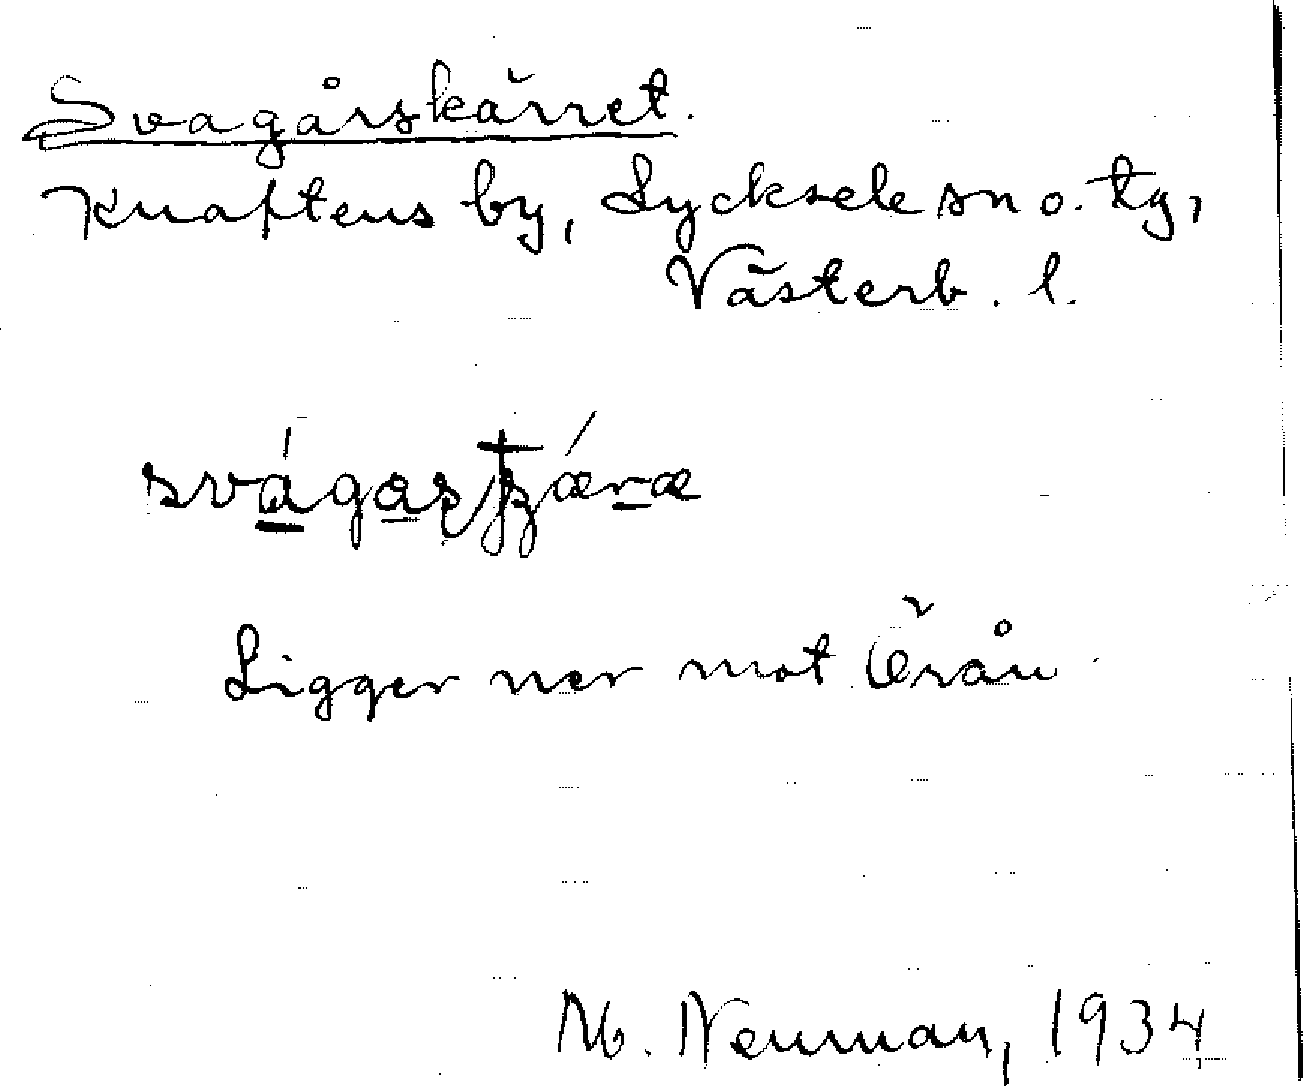 Svagårskärret.
Knaftens by, Lycksele sn o. tg,
Västerb. l.
Ligger ner mot Örån
M. Neuman, 1934